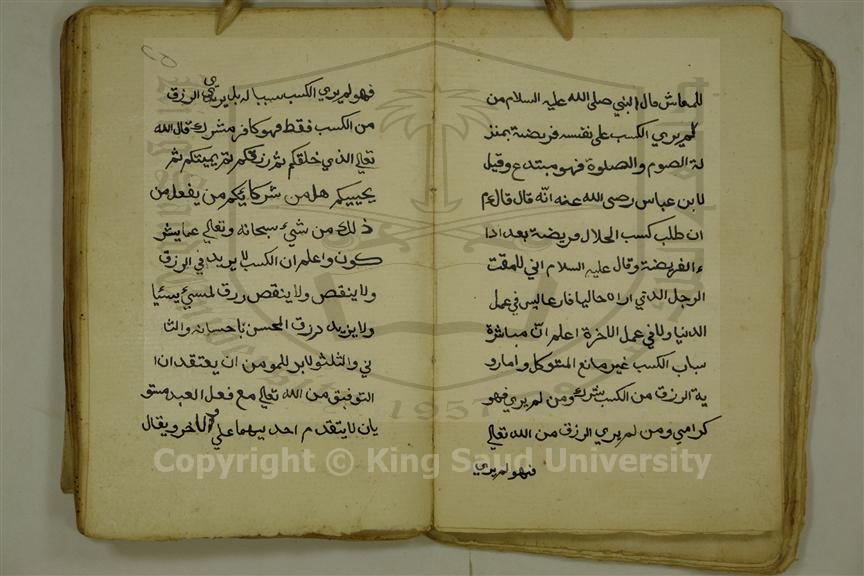 للمعاش قال النبي صلى الله عليه السلام من
لم يري الكسب على نفسه فريضة بمنز
لة الصوم والصلوة فهو مبتدع وقيل
لابن عباس رضى الله عنه انّه قال قال ءم
ان طلب كسب الحلال فريضة بعد ادا
ء الفريضة وقال عليه السلام اني للمقت
الرجل الذي اراه خاليا فارعا ليس في عمل
الدنيا ولا في عمل الاخرة اعلم انّ مباشرة
سباب الكسب غير مانع المتوكل واما رو
ية الرزق من الكسب شرك ومن لم يري فهو
كرامي ومن لم يري الرزق من الله تعالي
فهو لم يري
فهو لم يري الكسب سببا له بل يري الرزق
من الكسب فقط فهو كافر مشرك قال الله
تعالي الذي خلقكم ثم رزقكم ثم يميتكم ثم
يحييكم هل من شركايكم من يفعل من
ذلك من شيء سبحانه وتعالي عما يشر
كون واعلم ان الكسب لا يريد في الرزق
ولا ينقص ولا ينقص رزق لمسيء
ولا يزيد درزق المحسن باحسانه والثا
ني والثلث لابر للمومن ان يعتقد ان ا
التوفيق من الله تعالي مع فعل العبد مستو
يان لا يتقدم احد يهما علي الاخر ويقال
Copyright © King Saud University
1957